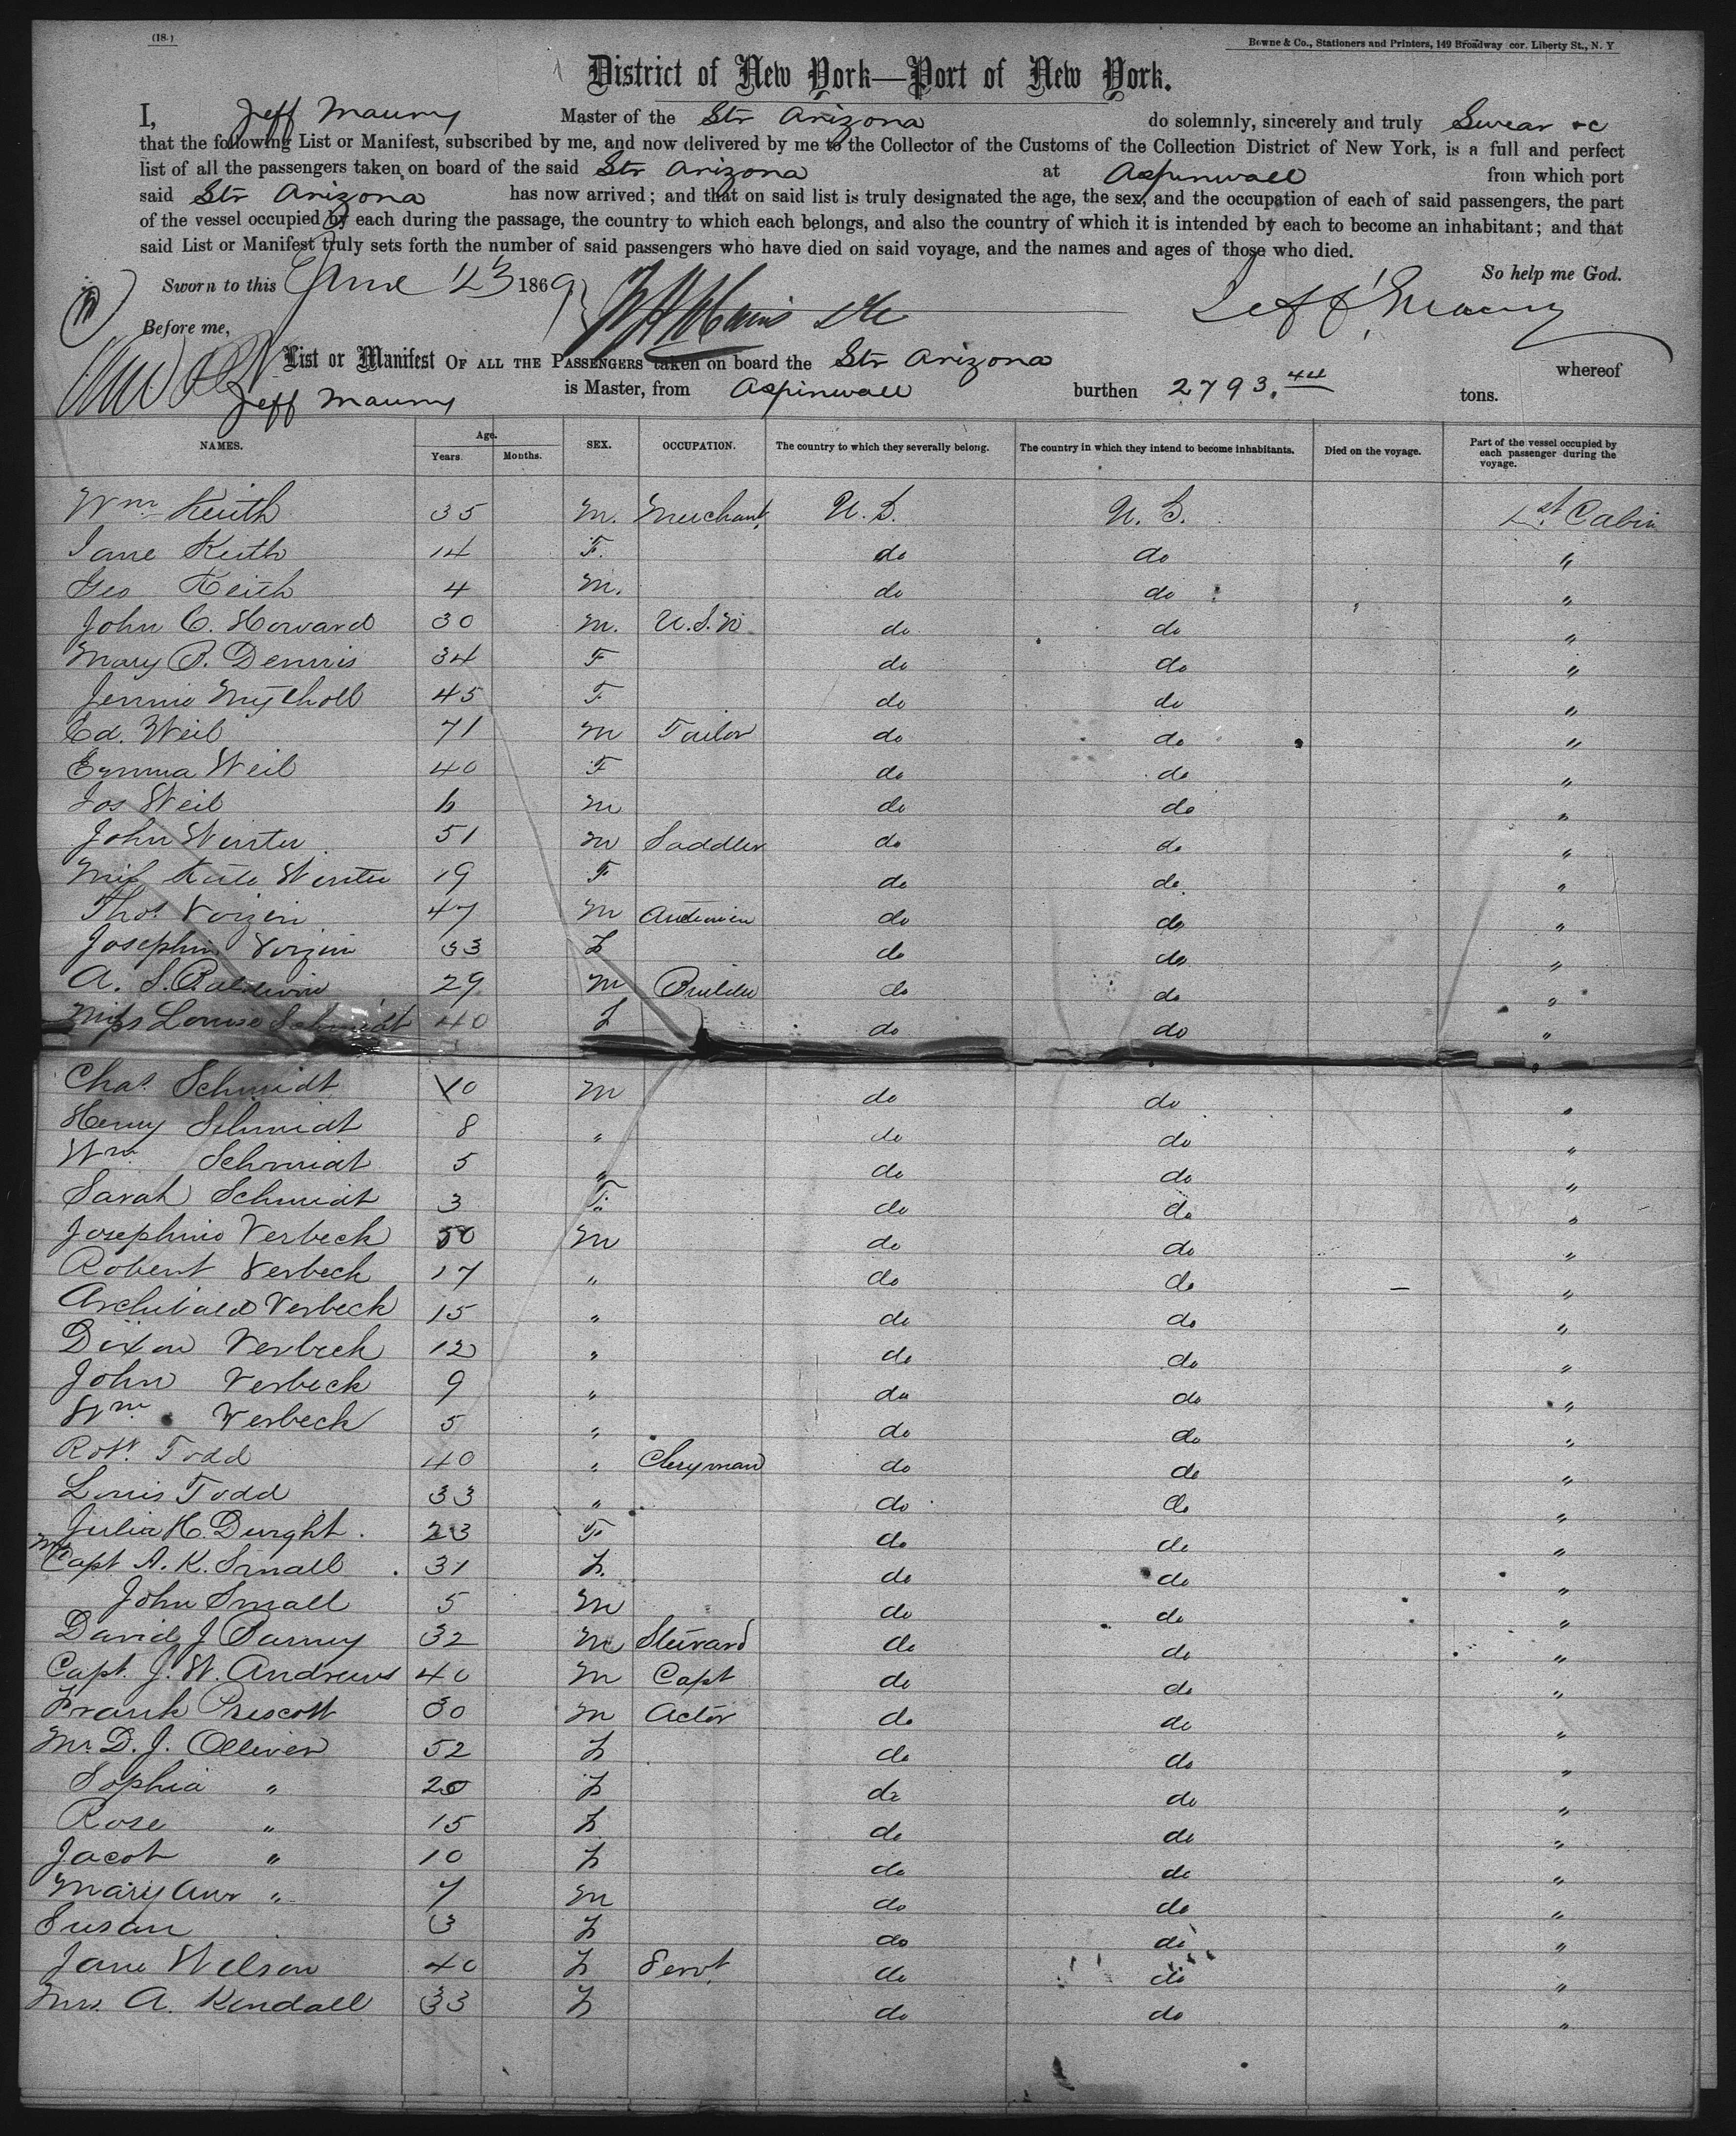 (18.)
Bowne & Co., Stationers and Printers, 149 Broadway cor. Liberty St., N. Y
District of New York—Port of New York.
I, Jeff Maury Master of the Str Arizona do solemnly, sincerely and truly Swear &c
that the following List or Manifest, subscribed by me, and now delivered by me to the Collector of the Customs of the Collection District of New York, is a full and perfect
list of all the passengers taken on board of the said Str Arizona at Aspinwall from which port
said Str Arizona has now arrived; and that on said list is truly designated the age, the sex, and the occupation of each of said passengers, the part
of the vessel occupied by each during the passage, the country to which each belongs, and also the country of which it is intended by each to become an inhabitant; and that
said List or Manifest truly sets forth the number of said passengers who have died on said voyage, and the names and ages of those who died.
So help me God.
Sworn to this June 23 1869
Jeff Maury
Before me,
List or Manifest OF ALL THE PASSENGERS taken on board the Str Arizona whereof
Jeff Maury is Master, from Aspinwall burthen 2793.44 tons.
NAMES. Age. Years. Months. SEX. OCCUPATION. The country to which they severally belong. The country in which they intend to become inhabitants. Died on the voyage. Part of the vessel occupied by each passenger during the voyage.
Wm Keith 35 M. Merchant U. S. U. S. 1st Cabin
Jane Keith 14 F. do do "
Geo Keith 4 M. do do "
John C. Howard 30 M. U.S.N. do do "
Mary P. Dennis 34 F do do "
Jennie 45 F do do "
Ed. Weil 71 M Tailor do do "
Emma Weil 40 F do do "
Jos Weil 6 M do do "
John Winter 51 M Saddler do do "
Miss Kate Winter 19 F do do "
Thos Voizin 47 M do do "
Josephin Voizin 33 F do do "
A. S. Baldwin 29 M Builder do do "
Miss Louise Schmidt 40 F do do "
Chas Schmidt 10 M do do "
Henry Schmidt 8 " do do "
Wm Schmidt 5 " do do "
Sarah Schmidt 3 F. do do "
Josephine Verbeck 50 M do do "
Robert Verbeck 17 " do do "
Archibald Verbeck 15 " do do "
Dixon Verbeck 12 " do do "
John Verbeck 9 " do do "
Wm Verbeck 5 " do do "
Robt. Todd 40 " Cleryman do do "
Louis Todd 33 " do do "
Julia H. Dwight. 23 F do do "
Mrs Capt A. K. Small 31 F. do do "
John Small 5 M do do "
David J Barney 32 M Steward do do "
Capt. J. W. Andrews 40 M Capt do do "
Frank Prescott 30 M Actor do do "
Mr D. J. Olliver 52 F do do "
Sophia " 20 F do do "
Rose " 15 F do do "
Jacob " 10 F do do "
Mary Ann " 7 M do do "
Susan 3 F do do "
Jane Wilson 40 F Servt. do do "
Mrs A. Kendall 33 F do do "